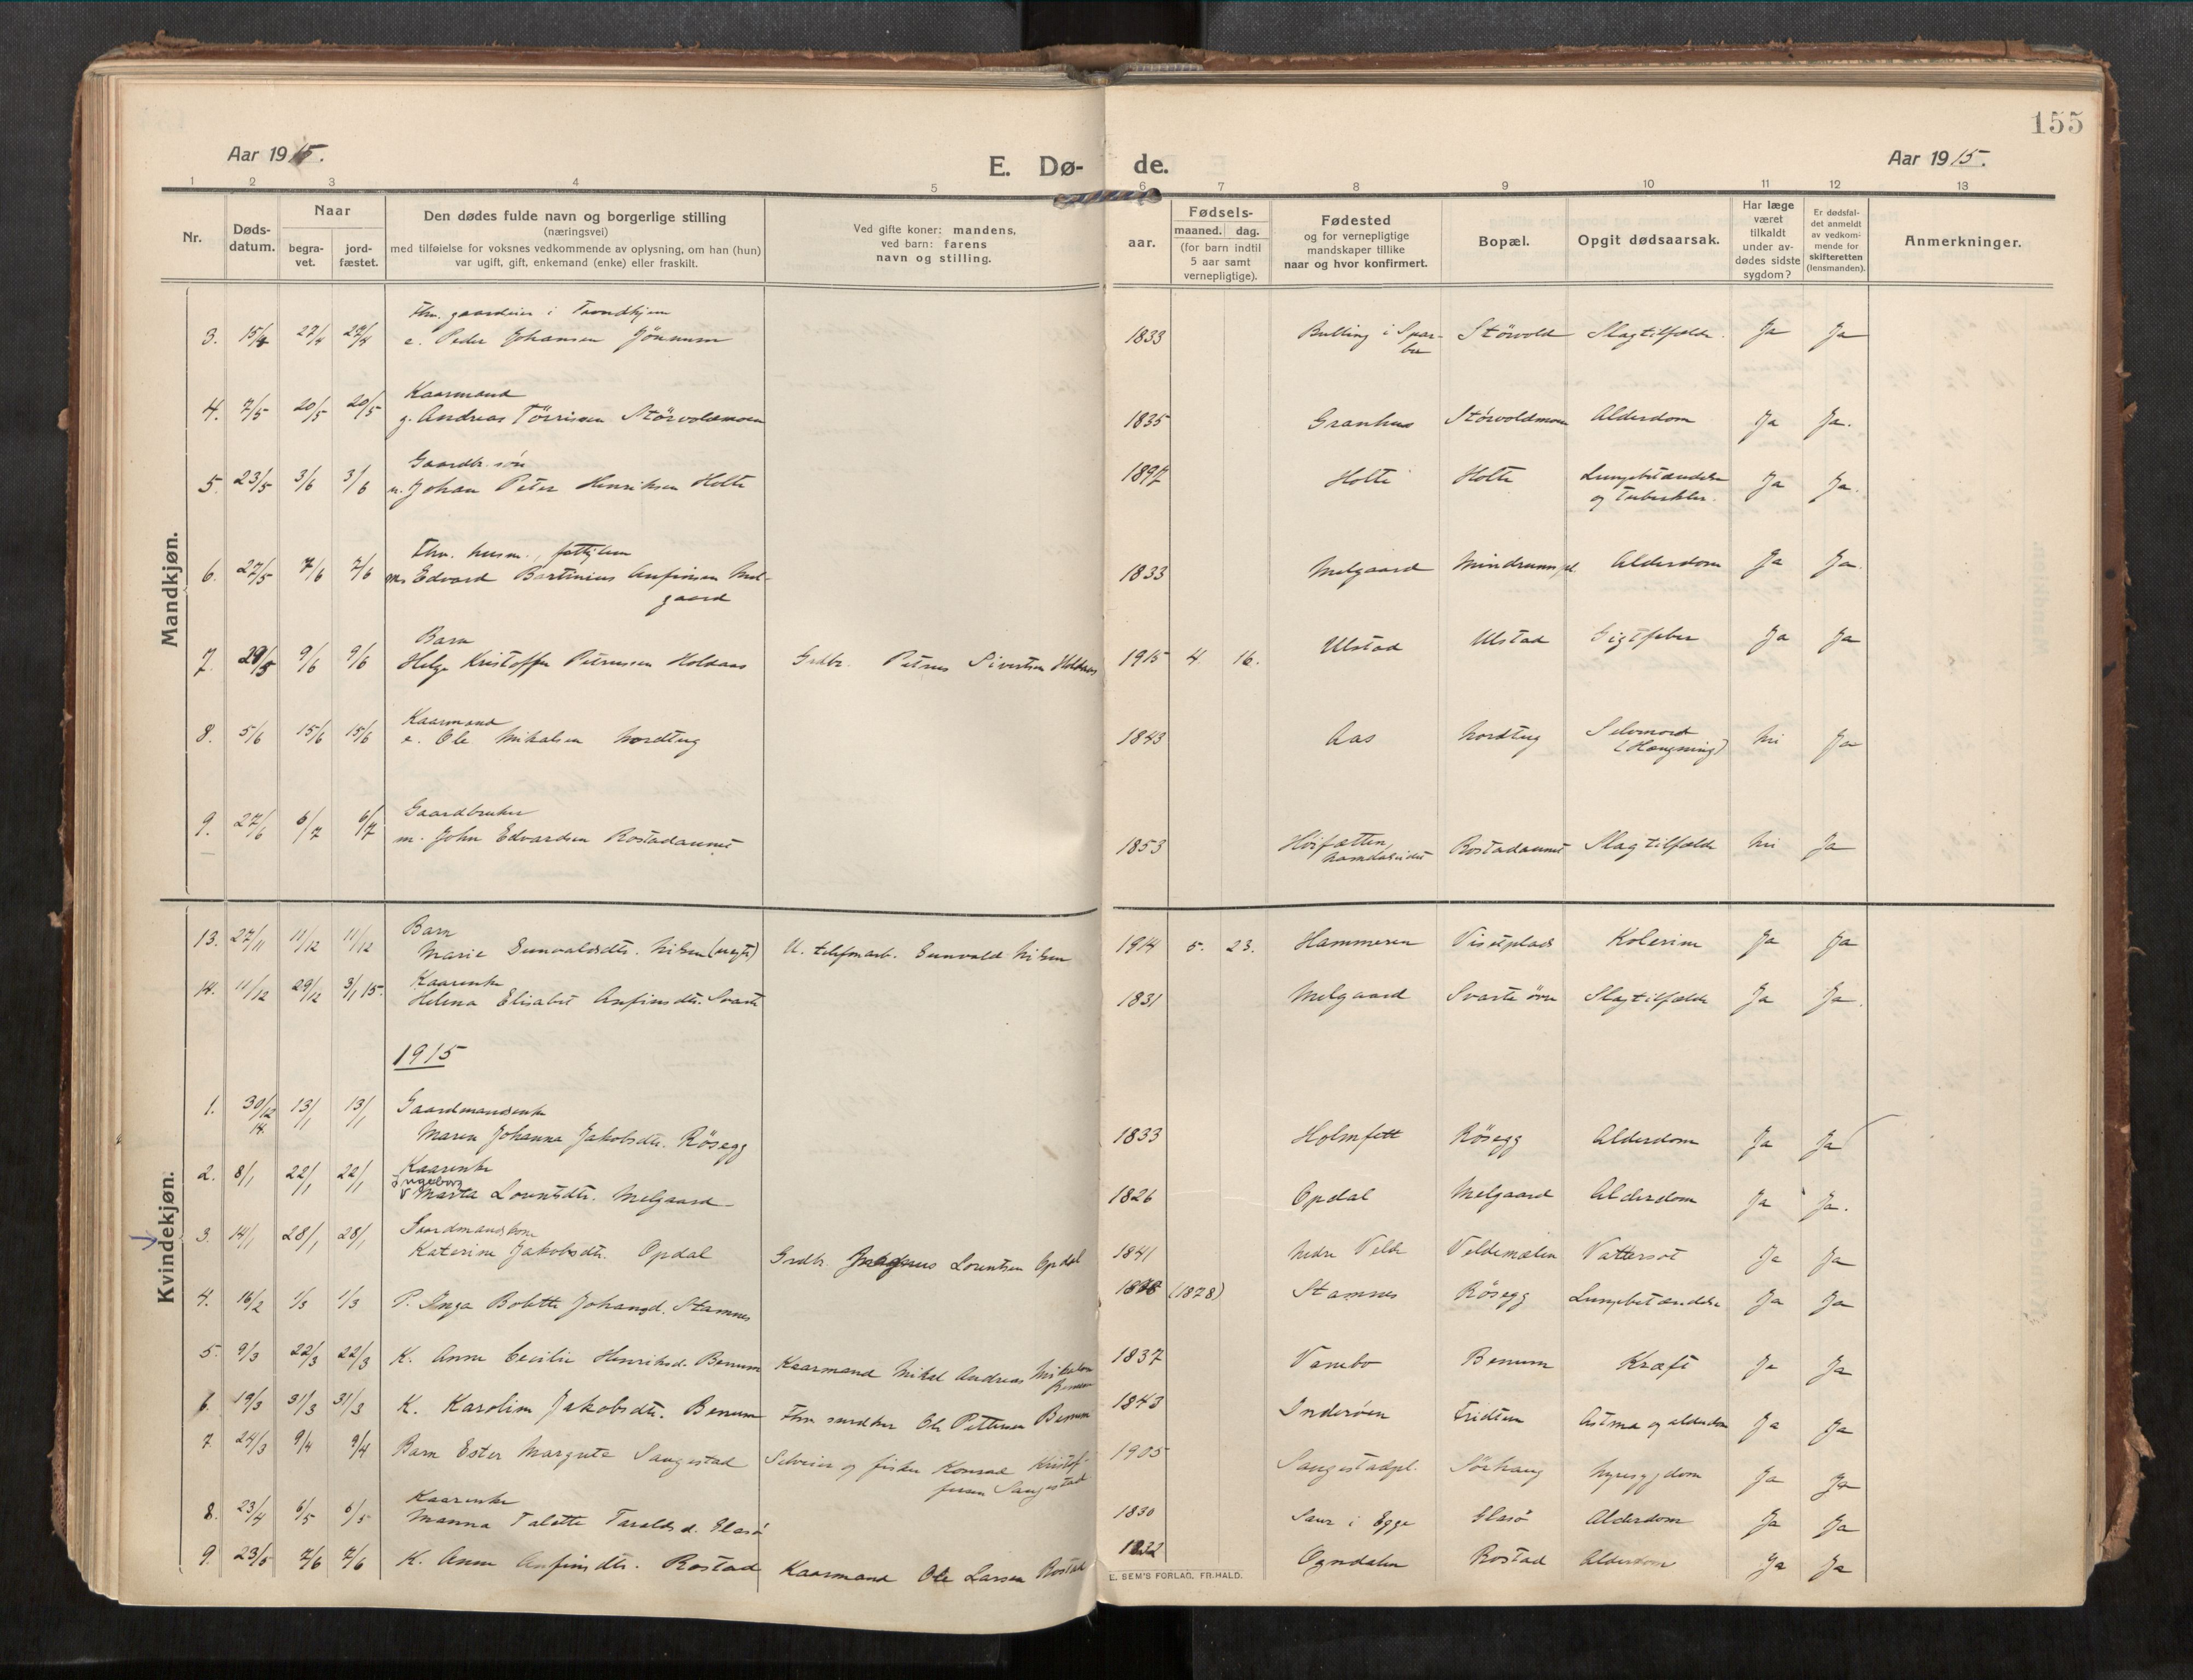 155
Aar 1915.
E. Dø- de.
Aar 1915.
1 2 3 4 5 6 7 8 9 10 11 12 13
Nr.
Døds-
datum.
Naar
begra-
vet.
jord-
fæstet.
Den dødes fulde navn og borgerlige stilling
(næringsvei)
med tilføielse for voksnes vedkommende av oplysning, om han (hun)
var ugift, gift, enkemand (enke) eller fraskilt.
Ved gifte koner: mandens,
ved barn: farens
navn og stilling.
aar.
Fødsels-
maaned. dag.
(for barn indtil
5 aar samt
vernepligtige).
Fødested
og for vernepligtige
mandskaper tillike
naar og hvor konfirmert.
Bopæl.
Opgit dødsaarsak.
Har læge
været
tilkaldt
under av-
dødes sidste
sygdom?
Er dødsfal-
det anmeldt
av vedkom-
mende for
skifteretten
(lensmanden).
Anmerkninger.
Mandkjøn.
Fhv. gaardeier i Trondhjem
3. 15/4 27/4 27/4 e. Peder Johansen 1833 Bulling i Spar-bu Störvold Slagtilfælde. Ja Ja
Kaarmand
4. 7/5 20/5 20/5 g. Andreas Törrisen Störvoldmoen 1835 Granhus Störvoldmoen Alderdom Ja Ja.
Gaardbr. søn
5. 23/5 3/6 3/6 u. Johan Peter Henriksen Holte 1897 Holte Holte Lungebetændelse og tuberkler. Ja Ja.
Fhv. husm.,
6. 27/5 7/6 7/6 Edvard Bartinius Anfinsen Mel-
gaard 1833 Melgaard Alderdom Ja Ja
Barn
7. 29/5 9/6 9/6 Helge Kristoffer Petrussen Holdaas Grdbr. Petrus Sivertsen Holdaas 1915 4 16. Ulstad Ulstad Gigtfeber Ja Ja
Kaarmand
8. 5/6 15/6 15/6 e. Ole Mikalsen Nordtug 1843 Aas Nordtug Selvmord (Hængning) Nei Ja
Gaardbruker
9. 27/6 6/7 6/7 m. John Edvardsen Rostadaunet 1853 Namdalseidet Rostadaunet Slagtilfælde Nei Ja
Kvindekjøn.
Barn
13. 27/11 11/12 11/12 Marie Sunvaldsdtr. Nilsen (uegte) U. telefonarb. Sunvald Nilsen 1914 5. 23. Hammeren Vistplads Kolerine Ja Ja
Kaarenke
14. 11/12 29/12 3/1 15. Helena Elisabet Anfinsdtr. Svarte 1831 Melgaard Svarteöre Slagtilfælde Ja Ja.
1915
Gaardmandsenke
1. 30/12 14. 13/1 13/1 Maren Johanna Jakobsdtr. Rösegg 1833 Holmfett Rösegg Alderdom Ja Ja
Kaarenke
Ingeborg
2. 8/1 22/1 22/1 Marta Lorentsdtr. Melgaard 1826 Opdal Melgaard Alderdom Ja Ja.
Gaardmandskone
3. 14/1 28/1 28/1 Katerine Jakobsdtr. Opdal Grdbr. Lorentsen Opdal 1841 Nedre Velde Veldemælen Vattersot Ja Ja
4. 16/2 1/3 1/3 P. Inga Bolette Johansd. Stamnes (1878) Stamnes Rösegg Lungebetændelse Ja Ja
5. 9/3 22/3 22/3 K. Anne Cecilie Henriksd. Benum Kaarmand Mikal Andreas Mikalsen
Benum 1837 Vanebo Benum Kræft Ja Ja
6. 19/3 31/3 31/3 K. Karoline Jakobsdtr. Benum Fhv. Ole Pettersen Benum 1843 Inderöen Tridtun Astma og alderdom Ja Ja
7. 24/3 9/4 9/4 Barn Ester Margrete Saugestad Selveier og fisker Konrad Kristof-
fersen Saugestad 1905 Saugestadpl. Sörhaug Nyresygdom Ja Ja
Kaarenke
8. 23/4 6/5 6/5 Manna Talette Taraldsd. Glasö 1830 Saur i Egge Glasö Alderdom Ja Ja
9. 23/5 7/6 7/6 K. Anne Anfinsdtr. Rostad Kaarmand Ole Larsen Rostad 1832 Ogndalen Rostad Alderdom Ja Ja
E. SEM'S FORLAG, FR.HALD.